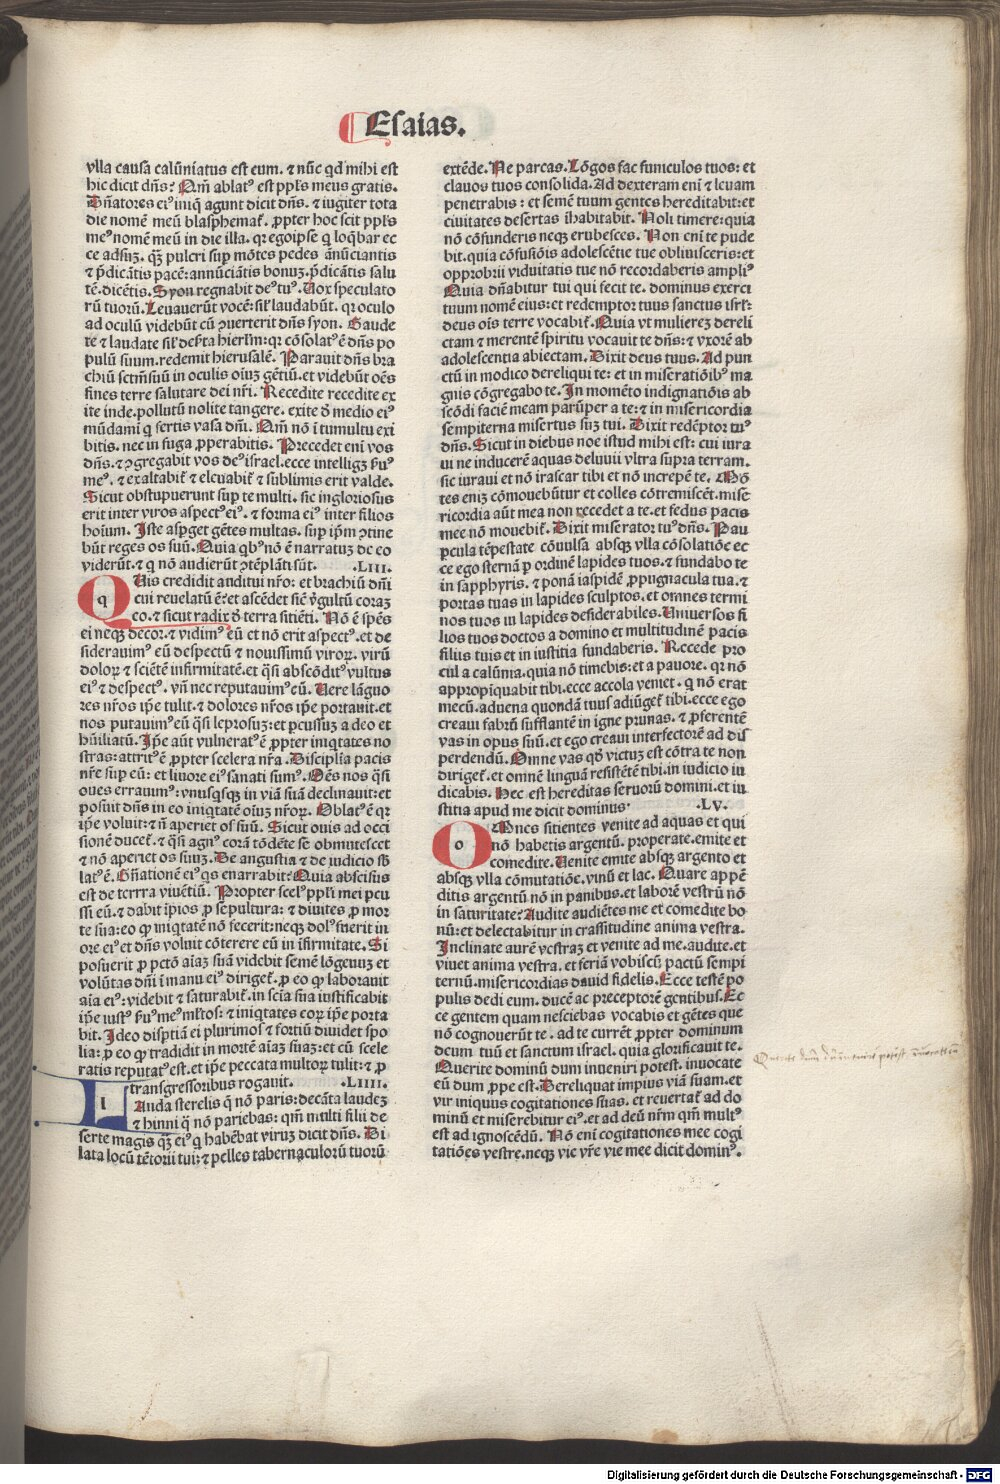 Esaias.
vlla causa calũniatus est eum. ⁊ nũc qd mihi est
hic dicit dñs? Qm̃ ablatꝰ est ppl̃s meus gratis.
Dñatores eiꝰ iniq̃ agunt dicit dñs. ⁊ iugiter tota
die nomẽ meũ blasphemat̃. ꝓpter hoc scit ppl̃s
meꝰ nomẽ meũ in die illa. qꝛ ego ipse q loq̃bar ec
ce adsuꝫ. q̃ꝫ pulcri suꝑ mõtes pedes ãnũciantis
⁊ p̃dicãtis pacẽ: annũciãtis bonuꝫ. p̃dicãtis salu
tẽ. dicẽtis. Syon regnabit deꝰ tuꝰ. Uox speculato
rũ tuorũ. Leuauerũt vocẽ: sil̃ laudabũt. qꝛ oculo
ad oculũ videbũt cũ ꝯuerterit dñs syon. Gaude
te ⁊ laudate sil̃ deserta hierlm̃: qꝛ cõsolatꝰ ẽ dñs po
pulũ suum. redemit hierusalẽ. Parauit dñs bra
chiũ sctm̃ suũ in oculis oĩuꝫ gẽtiũ. et videbũt oẽs
fines terre salutare dei nr̃i. Recedite recedite ex
ite inde. pollutũ nolite tangere. exite ð medio eiꝰ
mũdami q fertis vasa dñi. Qm̃ nõ ĩ tumultu exi
bitis. nec in fuga ꝓperabitis. Precedet eni vos
dñs. ⁊ ꝯgregabit vos deꝰ israel. ecce intelligꝫ ẜuꝰ
meꝰ. ⁊ exaltabit̃ ⁊ eleuabit̃ ⁊ sublimis erit valde.
Sicut obstupuerunt suꝑ te multi. sic ingloriosus
erit inter viros aspectꝰ eiꝰ. ⁊ forma eiꝰ inter filios
hoĩum. Iste asꝑget gẽtes multas. suꝑ ip̃m ꝯtine
bũt reges os suũ. Quia qbꝰ nõ ẽ narratuꝫ de eo
viderũt. ⁊ q nõ audierũt ꝯtẽplati sũt. .LIII.
QUis credidit auditui nr̃o: et brachiũ dñi
cui reuelatũ ẽ: et ascẽdet sic̃ v̾gultũ coraꝫ
eo. ⁊ sicut radix ð terra sitiẽti. Nõ ẽ spẽs
ei neqꝫ decor. ⁊ vidimꝰ eũ et nõ erit aspectꝰ. et de
siderauimꝰ eũ despectũ ⁊ nouissimũ viroꝝ. virũ
doloꝝ ⁊ sciẽtẽ infirmitatẽ. et q̃si abscõditꝰ vultus
eiꝰ ⁊ despectꝰ. vñ nec reputauimꝰ eũ. Uere lãguo
res nr̃os ip̃e tulit. ⁊ dolores nr̃os ip̃e portauit. et
nos putauimꝰ eũ q̃si leprosuꝫ: et ꝑcussuꝫ a deo et
hũiliatũ. Ip̃e aũt vulneratꝰ ẽ ꝓpter iniqtates no
stras: attritꝰ ẽ ꝓpter scelera nr̃a. Disciplĩa pacis
nr̃e suꝑ eũ: et liuore eiꝰ sanati sumꝰ. Oẽs nos q̃si
oues errauimꝰ: vnusqꝫsqꝫ in viã suã declinauit: et
posuit dñs in eo iniqtatẽ oĩuꝫ nr̃oꝝ. Oblatꝰ ẽ qꝛ
ip̃e voluit: ⁊ ñ aperiet os suũ. Sicut ouis ad occi
sionẽ ducet̃. ⁊ q̃si agnꝰ corã tõdẽte se obmutescet
⁊ nõ aperiet os suuꝫ. De angustia ⁊ de iudicio sb̃
latꝰ ẽ. Gñationẽ eiꝰ qs enarrabit: Quia abscisus
est de terra viuẽtiũ. Propter scelꝰ ppl̃i mei ꝑcu
ssi eũ. ⁊ dabit ip̃ios ꝓ sepultura: ⁊ diuites ꝓ mor
te sua: eo ꝙ iniqtatẽ nõ fecerit: neqꝫ dolꝰ fuerit in
ore eiꝰ et dñs voluit cõterere eũ in ĩfirmitate. Si
posuerit ꝓ pctõ aĩaꝫ suã videbit semẽ lõgeuuꝫ et
volũtas dñi ĩ manu eiꝰ diriget̃. ꝓ eo ꝙ laborauit
aĩa eiꝰ: videbit ⁊ saturabit̃. in scĩa sua iustificabit
ip̃e iustꝰ ẜuꝰ meꝰ ml̃tos: ⁊ iniqtates eoꝝ ip̃e porta
bit. Ideo disptiã ei plurimos ⁊ fortiũ diuidet spo
lia: ꝓ eo ꝙ tradidit in mortẽ aĩaꝫ suaꝫ: et cũ scele
ratis reputatꝰ est. et ip̃e peccata multoꝝ tulit: ⁊ ꝓ
transgressoribus rogauit. .LIIII.
LAuda sterelis q̃ nõ paris: decãta laudeꝫ
⁊ hinni q̃ nõ pariebas: qm̃ multi filii de
serte magis q̃ꝫ eiꝰ q habẽbat viruꝫ dicit dñs. Di
lata locũ tẽtorii tui: ⁊ pelles tabernaculorũ tuorũ
extẽde. Ne parcas. Lõgos fac funiculos tuos: et
clauos tuos consolida. Ad dexteram eni ⁊ leuam
penetrabis: et semẽ tuum gentes hereditabit: et
ciuitates desertas ĩhabitabit. Noli timere: quia
nõ cõfunderis neqꝫ erubesces. Non eni te pude
bit. quia cõfusiõis adolescẽtie tue obliuisceris: et
opprobrii viduitatis tue nõ recordaberis ampliꝰ
Quia dñabitur tui qui fecit te. dominus exerci
tuum nomẽ eius: et redemptor tuus sanctus isrl̃:
deus oĩs terre vocabit̃. Quia vt muliereꝫ dereli
ctam ⁊ merentẽ spiritu vocauit te dñs: ⁊ vxorẽ ab
adolescentia abiectam. Dixit deus tuus. Ad pun
ctũ in modico dereliqui te: et in miseratiõibꝰ ma
gnis cõgregabo te. In momẽto indignatiõis ab
scõdi faciẽ meam parũper a te: ⁊ in misericordia
sempiterna misertus suꝫ tui. Dixit redẽptor tuꝰ
dñs. Sicut in diebus noe istud mihi est: cui iura
ui ne inducerẽ aquas deluuii vltra supra terram.
sic iuraui et nõ irascar tibi et nõ increpẽ te. Mõ
tes eniꝫ cõmouebũtur et colles cõtremiscẽt. mise
ricordia aũt mea non recedet a te. et fedus pacis
mee nõ mouebit̃. Dixit miserator tuꝰ dñs. Pau
ꝑcula tẽpestate cõuulsa absqꝫ vlla cõsolatiõe ec
ce ego sternã ꝑ ordinẽ lapides tuos. ⁊ fundabo te
in sapphyris. ⁊ ponã iaspidẽ ꝓpugnacula tua. ⁊
portas tuas in lapides sculptos. et omnes termi
nos tuos in lapides desiderabiles. Uniuersos fi
lios tuos doctos a domino et multitudinẽ pacis
filiis tuis et in iustitia fundaberis. Recede pro
cul a calũnia. quia nõ timebis: et a pauore. qꝛ nõ
appropĩquabit tibi. ecce accola veniet. q nõ erat
mecũ. aduena quondã tuus adiũget̃ tibi. ecce ego
creaui fabrũ sufflantẽ in igne prunas. ⁊ ꝓferentẽ
vas in opus suũ. et ego creaui interfectorẽ ad dis
perdendũ. Omne vas qð victuꝫ est cõtra te non
diriget̃. et omnẽ linguã resistẽtẽ tibi. in iudicio iu
dicabis. Hec est hereditas seruorũ domini. et iu
stitia apud me dicit dominus. .LV.
OMnes sitientes venite ad aquas et qui
nõ habetis argentũ. properate. emite et
comedite. Uenite emite absqꝫ argento et
absqꝫ vlla cõmutatiõe. vinũ et lac. Quare appẽ
ditis argentũ nõ in panibus. et laborẽ vestrũ nõ
in saturitate? Audite audiẽtes me et comedite bo
nũ: et delectabitur in crassitudine anima vestra.
Inclinate aurẽ vestraꝫ et venite ad me. audite. et
viuet anima vestra. et feriã vobiscũ pactũ sempi
ternũ. misericordias dauid fidelis. Ecce testẽ po
pulis dedi eum. ducẽ ac preceptorẽ gentibus. Ec
ce gentem quam nesciebas vocabis et gẽtes que
nõ cognouerũt te. ad te currẽt ꝓpter dominum
deum tuũ et sanctum israel. quia glorificauit te.
Querite dominũ dum inueniri potest. inuocate
eũ dum ꝓpe est. Derelinquat impius viã suam. et
vir iniquus cogitationes suas. et reuertat̃ ad do
minũ et miserebitur eiꝰ. et ad deũ nr̃m qm̃ multꝰ
est ad ignoscẽdũ. Nõ eni cogitationes mee cogi
tatiões vestre. neqꝫ vie vr̃e vie mee dicit dominꝰ.
Digitalisierung gefördert durch die Deutsche Forschungsgemeinschaft - DFG